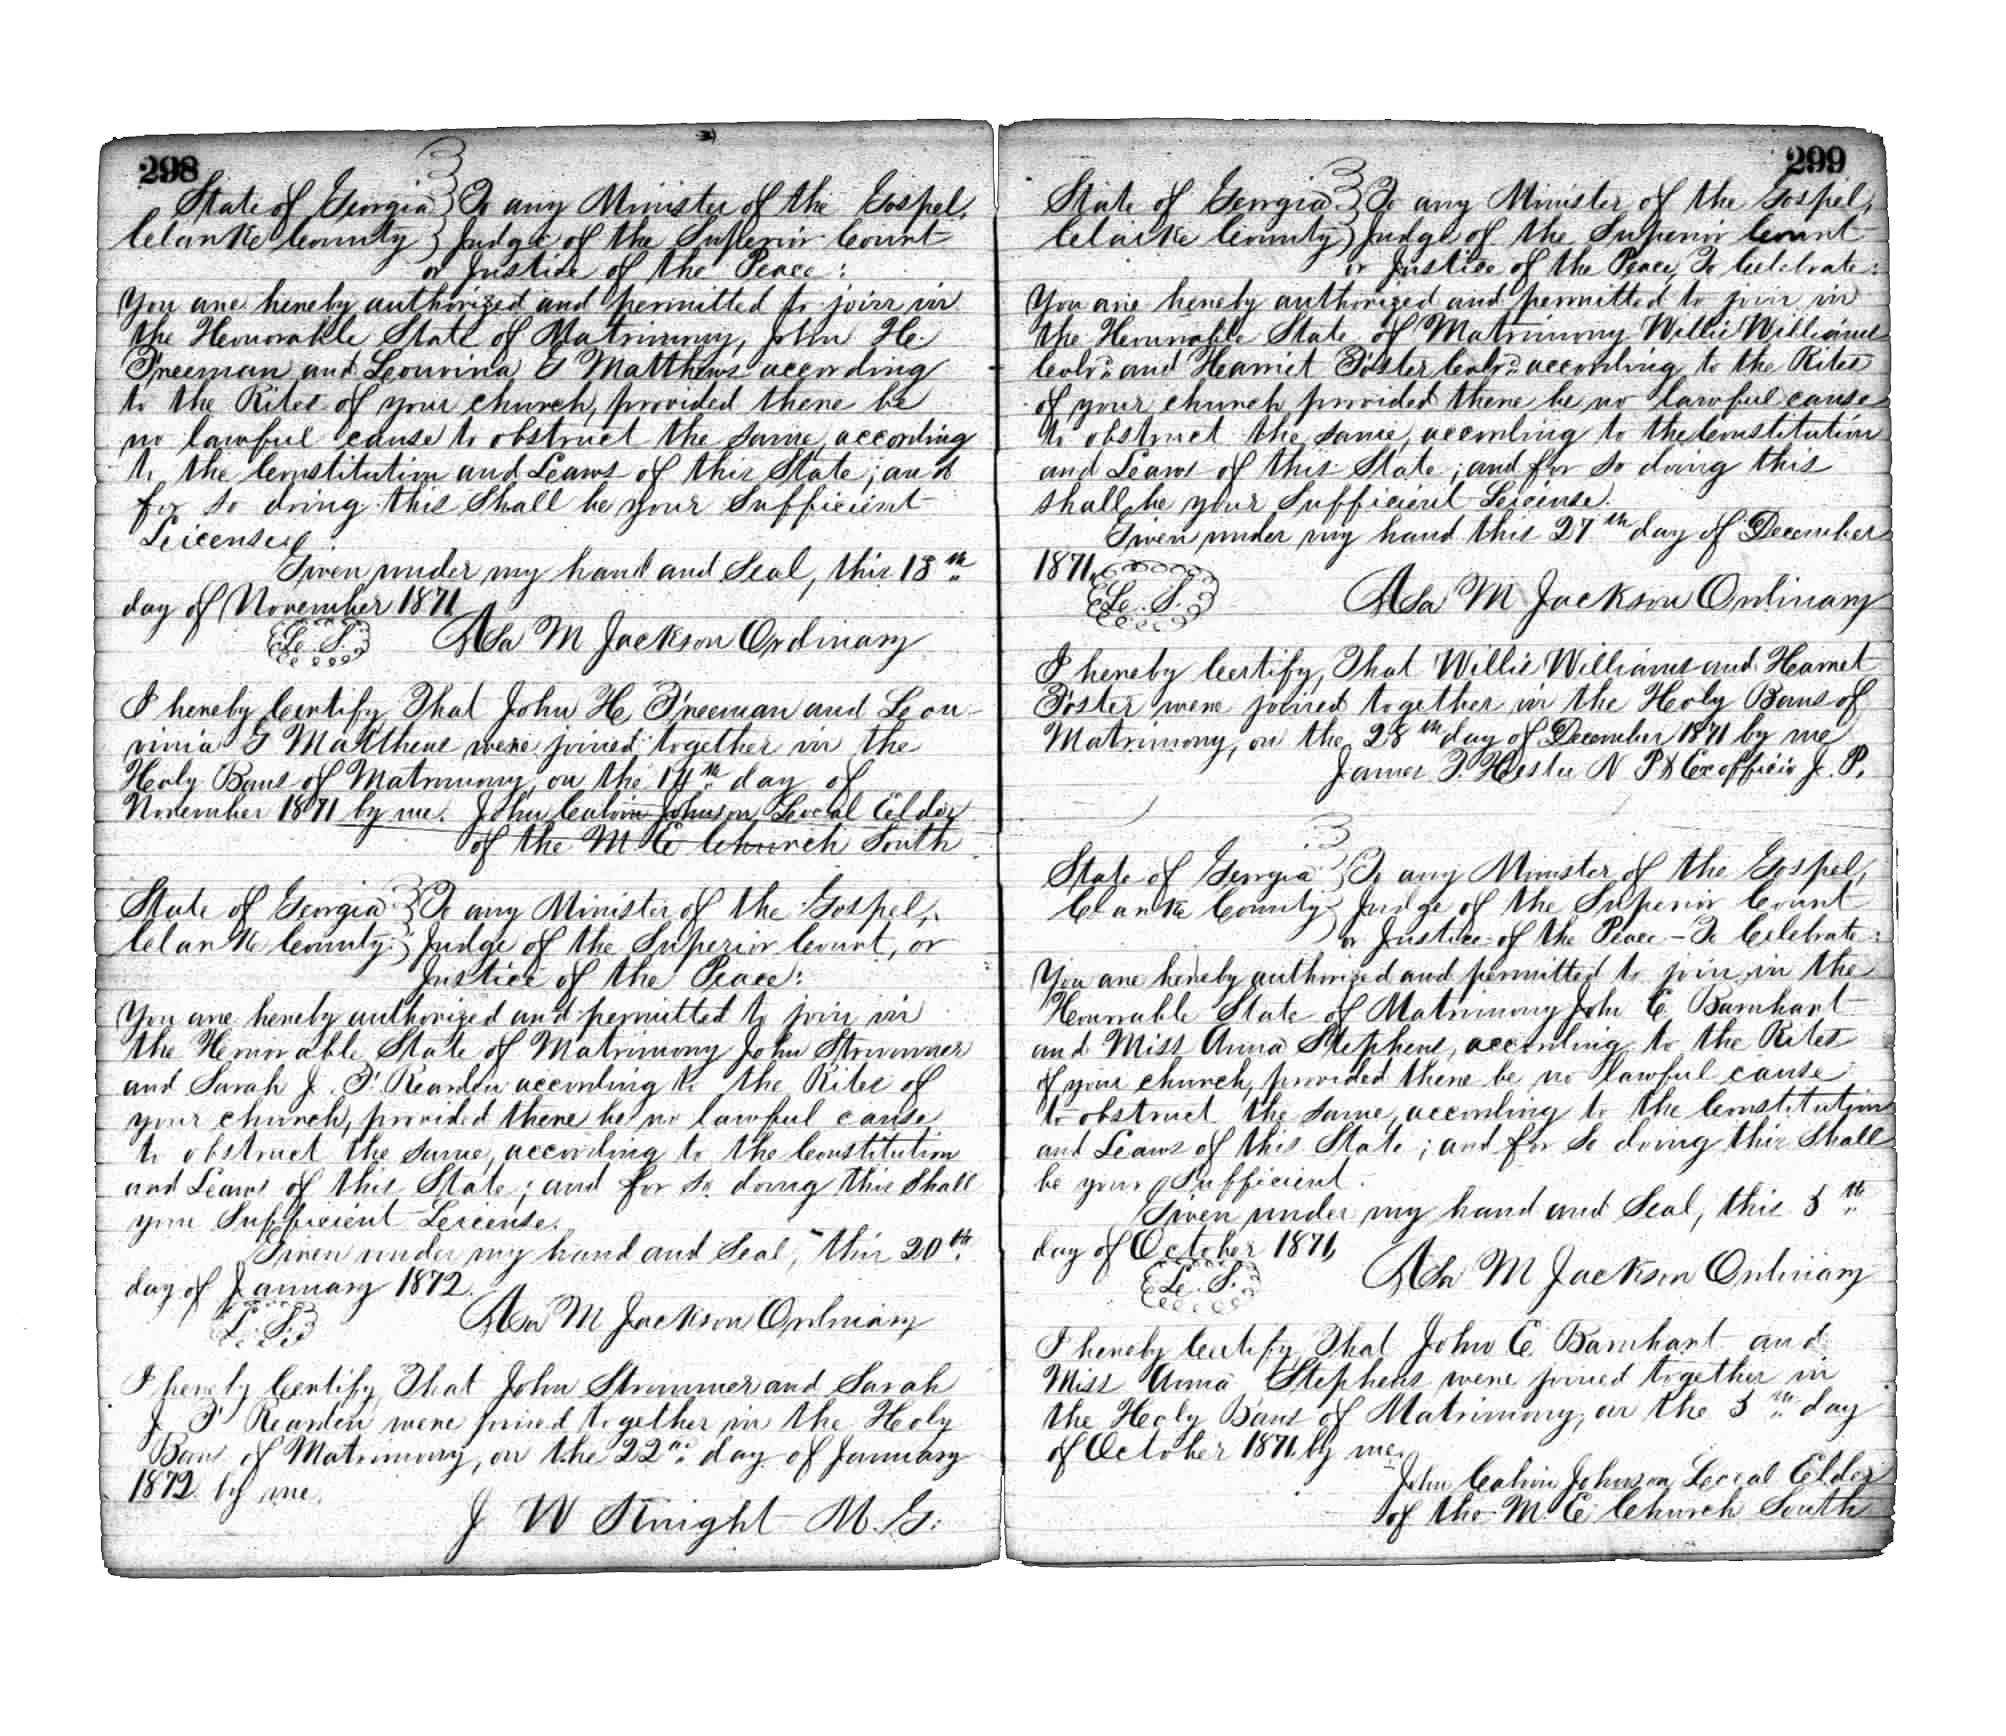 298
State of Georgia } To any Minister of the Gospel,
Clarke County } Judge of the Superior Court
or Justice of the Peace:
You are hereby authorized and permitted to join in
the Honorable State of Matrimony, John H.
Freeman and Leouvina G Matthews according
to the Rites of your church, provided there be
no lawful cause to obstruct the same, according
to the Constitution and Laws of this State; and
for so doing this Shall be your Sufficient
License.
Given under my hand and Seal, this 13th
day of November 1871
L. S. Asa M Jackson Ordinary
I hereby Certify That John H, Freeman and Leou-
vinia G Matthews were joined together in the
Holy Bans of Matrimony, on the 14th day of
November 1871 by me. John Calvin Johnson Local Elder
of the M E Church South
State of Georgia } To any Minister of the Gospel,
Clarke County } Judge of the Superior Court, or
Justice of the Peace:
You are hereby authorized and permitted to join in
the Honorable State of Matrimony John Strummer
and Sarah J. F. Rearden according to the Rites of
your church, provided there be no lawful cause
to obstruct the same, according to the Constitution
and Laws of this State; and for so doing this Shall
your Sufficient License.
Given under my hand and Seal, this 20th
day of January 1872.
L. S. Asa M Jackson Ordinary
I hereby Certify That John Strummer and Sarah
J F Rearden were joined together in the Holy
Bans of Matrimony, on the 22nd day of January
1872 by me.
J W Knight M. G.
299
State of Georgia } To any Minister of the Gospel,
Clarke County } Judge of the Superior Court
or Justice of the Peace, To Celebrate:
You are hereby authorized and permitted to join in
the Honorable State of Matrimony Willie Williams
Cold and Harriet Foster Cold according to the Rites
of your church provided there be no lawful cause
to obstruct the same, according to the Constitution
and Laws of this State; and for so doing this
shall be your Sufficient License.
Given under my hand this 27th day of December
1871.
L. S. Asa M Jackson Ordinary
I hereby Certify, That Willie Williams and Harriet
Foster were joined together in the Holy Bans of
Matrimony, on the 28th day of December 1871 by me
James F. Hester N P & Ex officio J. P.
State of Georgia } To any Minister of the Gospel,
Clarke County } Judge of the Superior Court
or Justice of the Peace - To Celebrate:
You are hereby authorized and permitted to join in the
Honorable State of Matrimony John E. Barnhart
and Miss Anna Stephens, according to the Rites
of your church, provided there be no lawful cause
to obstruct the same, according to the Constitution
and Laws of this State; and for so doing this Shall
be your Sufficient.
Given under my hand and Seal, this 5th
day of October 1871,
L. S. Asa M Jackson Ordinary
I hereby Certify That John E. Barnhart and
Miss Anna Stephens were joined together in
the Holy Bans of Matrimony, on the 5th day
of October 1871 by me.
John Calvin Johnson Local Elder
of the M. E Church South